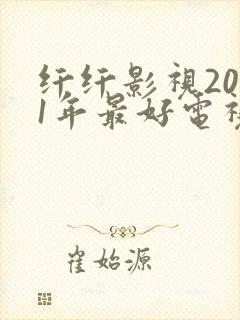 纤纤影视20
1年最好电视
崔始源